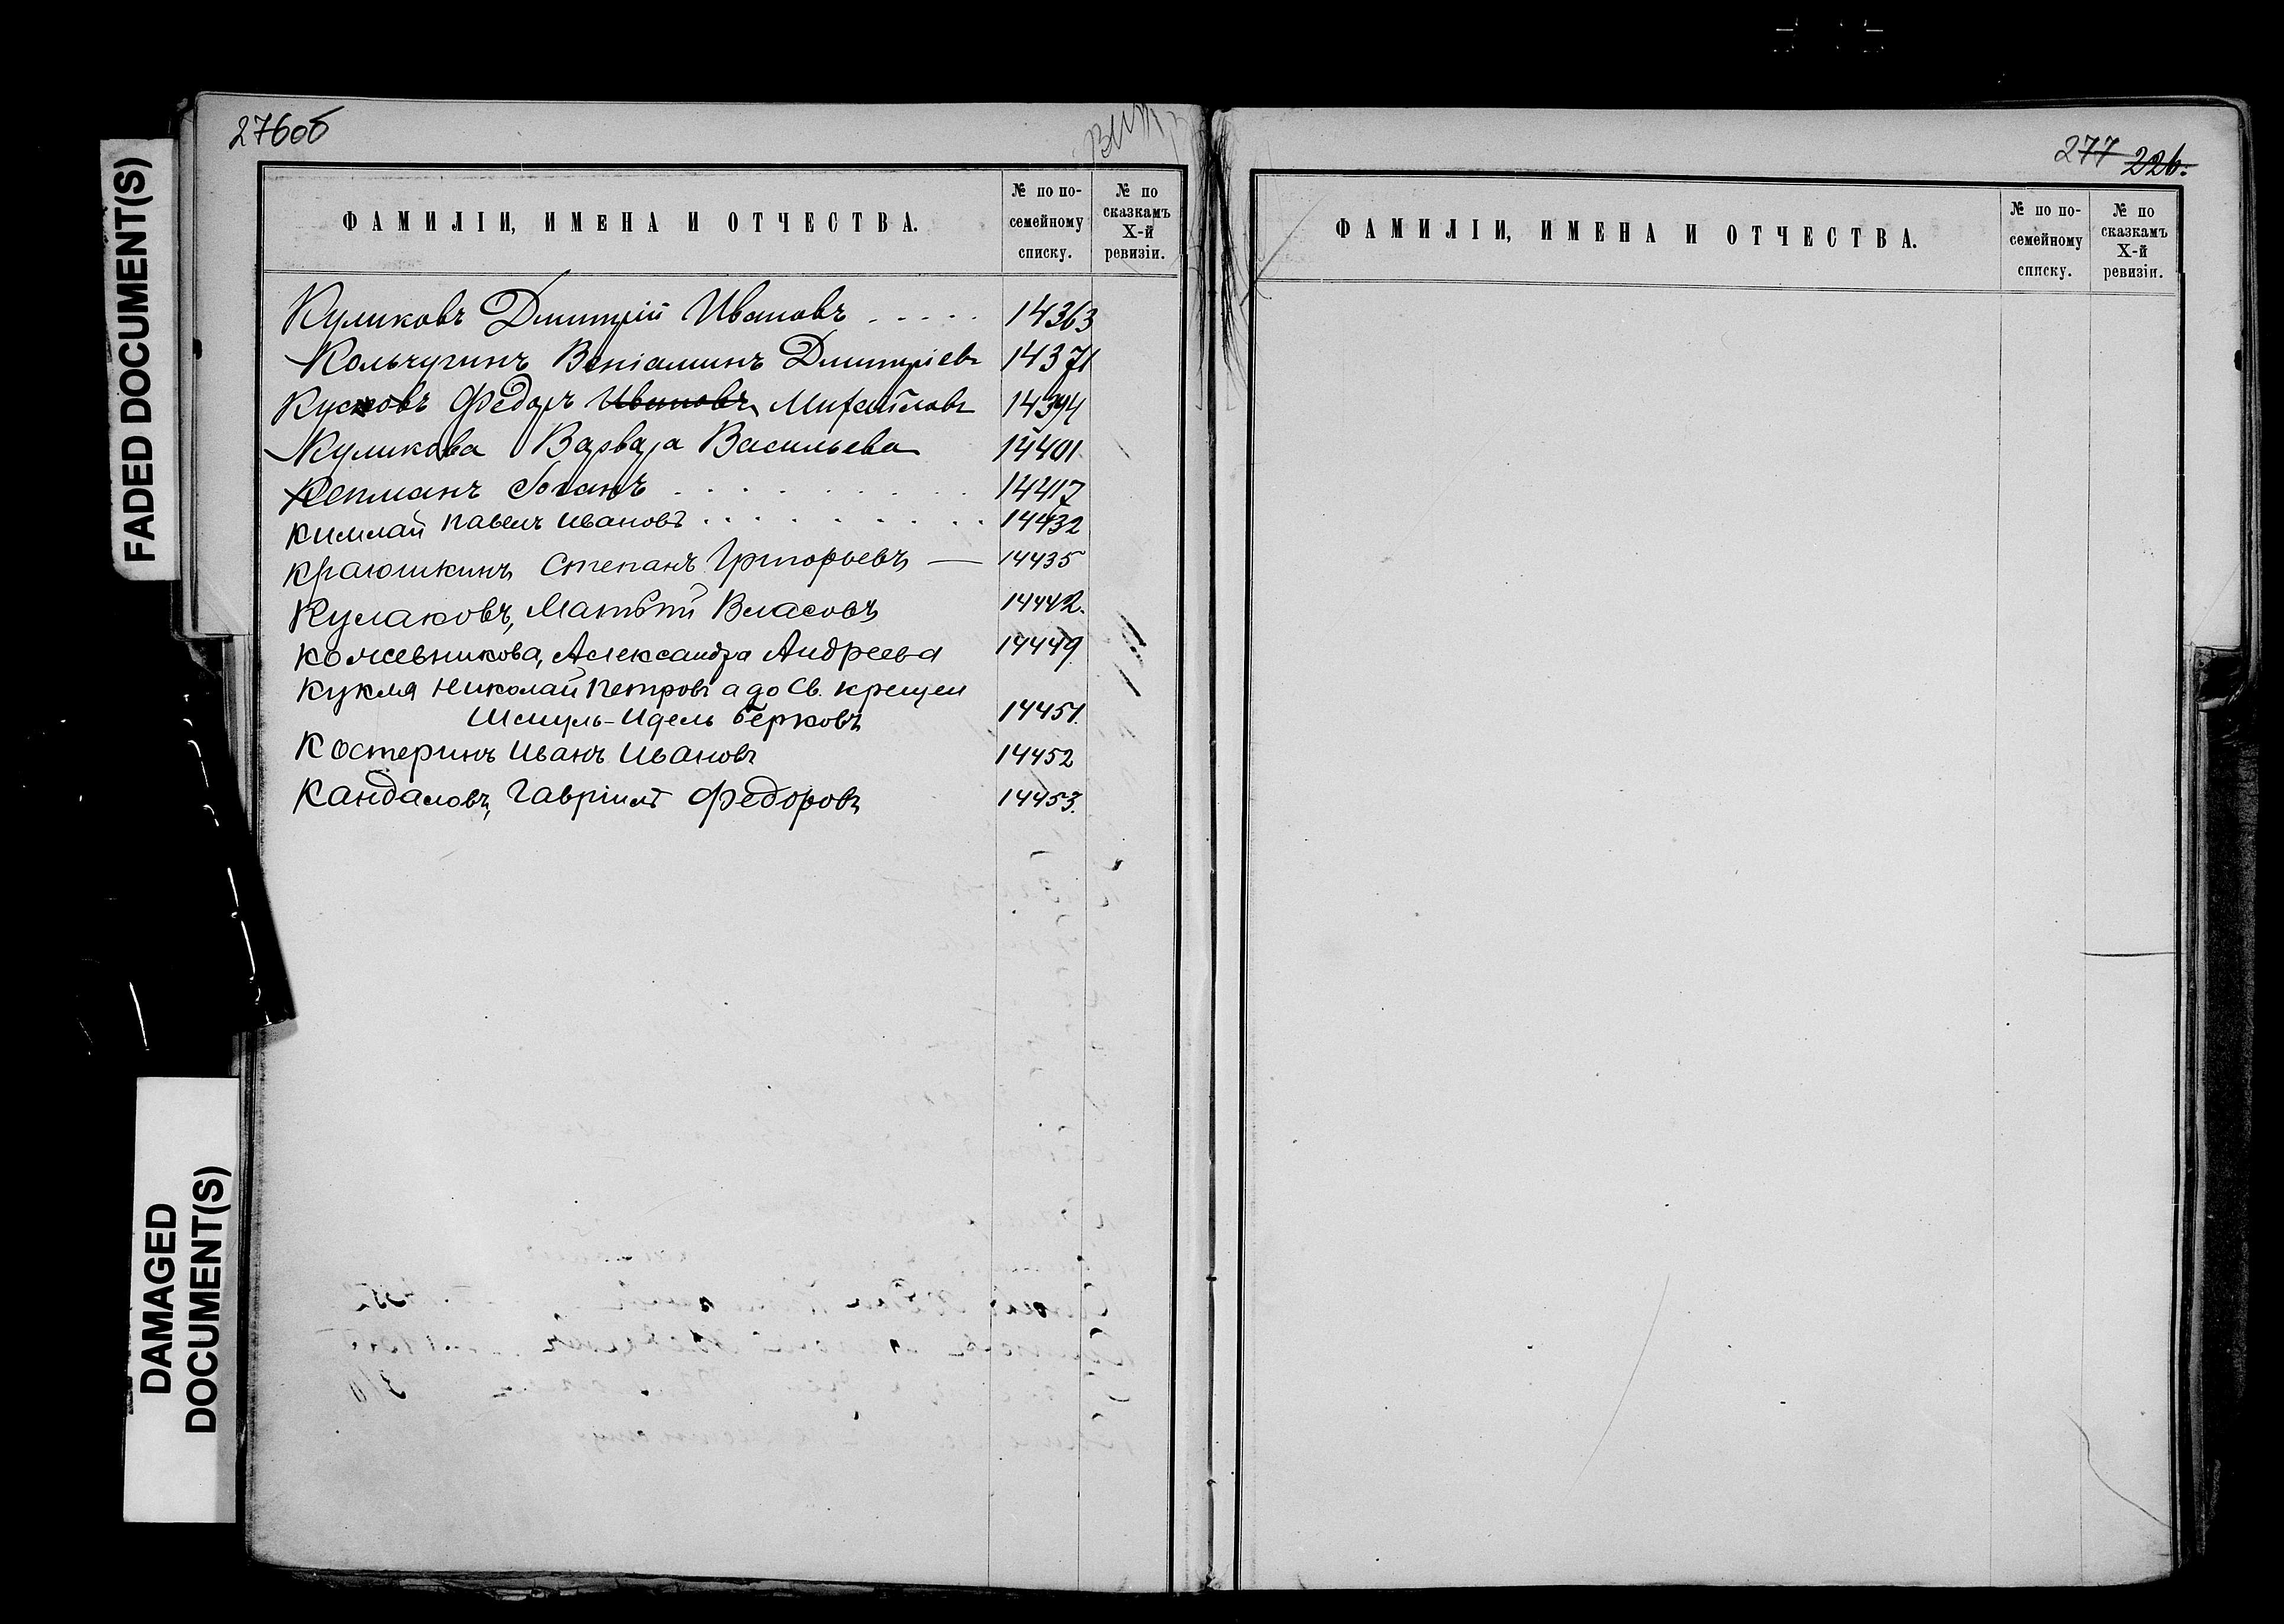 276об
ФАМИЛІИ, ИМЕНА И ОТЧЕСТВА.
№ по по-
семейному
списку.
№ по
сказкамъ
X-й
ревизіи.
Куликовъ Дмитрій Ивановъ . . . . . 14363
Кольчугинъ Веніаминъ Дмитріевъ 14371
Кусковъ Федоръ Ивановъ Михайловъ 14394
Куликова Варвара Васильева 14401
Кепманъ Іоганъ . . . . . . . . . 14417
Киммай Павелъ Ивановъ . . . . . . . . . 14432
Краюшкинъ Степанъ Григорьевъ — 14435
Кулаковъ, Матвѣй Власовъ 14442.
Кожевникова, Александра Андреева 14449
Кукля Николай Петровъ а до Св. крещен
Шмуль-Идель Берковъ 14451.
Костеринъ Иванъ Ивановъ 14452
Кандаловъ, Гавріилъ Федоровъ 14453.
277 226.
ФАМИЛІИ, ИМЕНА И ОТЧЕСТВА.
№ по по-
семейному
списку.
№ по
сказкамъ
X-й
ревизіи.
FADED DOCUMENT(S)
DAMAGED
DOCUMENT(S)